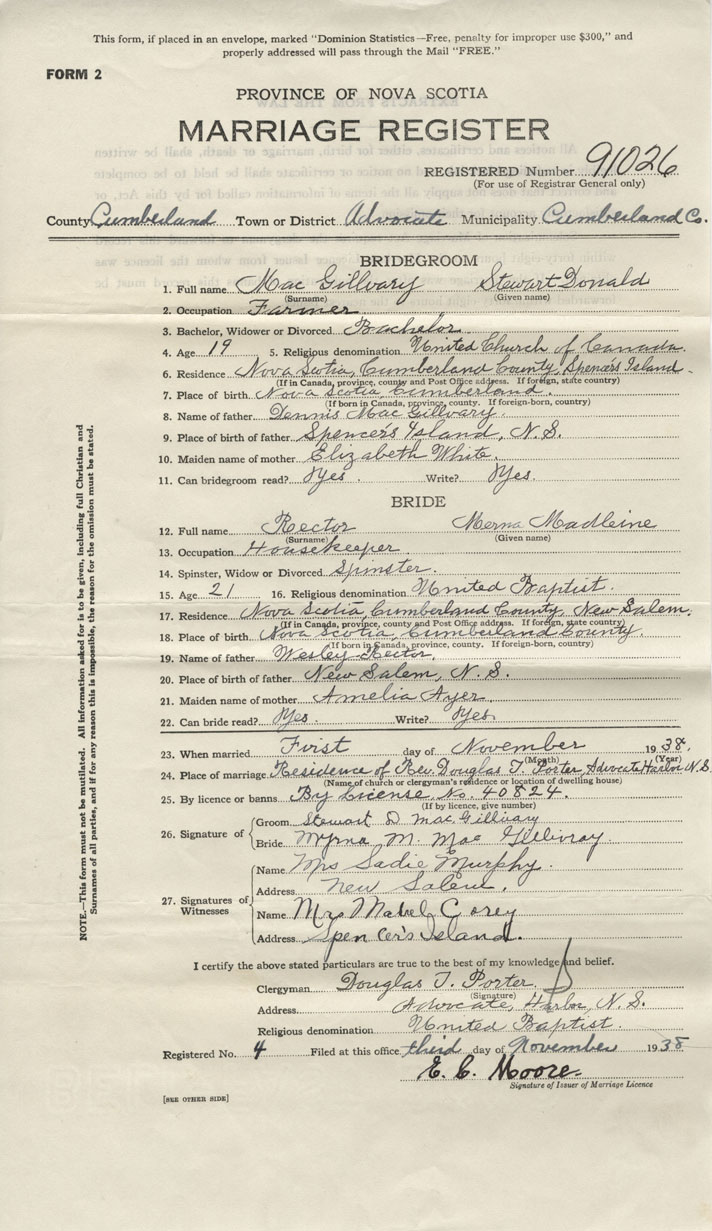 This form, if placed in an envelope, marked "Dominion Statistics—Free, penalty for improper use $300," and
properly addressed will pass through the Mail "FREE."
FORM 2
PROVINCE OF NOVA SCOTIA
MARRIAGE REGISTER
REGISTERED Number 91026
(For use of Registrar General only)
County Cumberland Town or District Advocate Municipality Cumberland Co.
BRIDEGROOM
1. Full name Mac Gillvary Stewart Donald
(Surname) (Given name)
2. Occupation Farmer
3. Bachelor, Widower or Divorced Bachelor
4. Age 19 5. Religious denomination United Church of Canada.
6. Residence Nova Scotia, Cumberland County, Spencer's Island.
(If in Canada, province, county and Post Office address. If foreign, state country)
7. Place of birth Nova Scotia, Cumberland.
(If born in Canada, province, county. If foreign-born, country)
8. Name of father Dennis Mac Gillvary.
9. Place of birth of father Spencer's Island, N.S.
10. Maiden name of mother Elizabeth White.
11. Can bridegroom read? Yes. Write? Yes.
BRIDE
12. Full name Rector Merna Madleine
(Surname) (Given name)
13. Occupation Housekeeper
14. Spinster, Widow or Divorced Spinster.
15. Age 21 16. Religious denomination United Baptist.
17. Residence Nova Scotia, Cumberland County, New Salem.
(If in Canada, province, county and Post Office address. If foreign, state country)
18. Place of birth Nova Scotia, Cumberland County.
(If born in Canada, province, county. If foreign-born, country)
19. Name of father Wesley Rector.
20. Place of birth of father New Salem, N.S.
21. Maiden name of mother Amelia Ayer
22. Can bride read? Yes. Write? Yes.
23. When married First day of November 1938.
(Month) (Year)
24. Place of marriage Residence of Rev. Douglas T. Porter, Advocate Harbor N.S.
(Name of church or clergyman's residence or location of dwelling house)
25. By licence or banns By License No. 40824.
(If by licence, give number)
26. Signature of Groom Stewart D Mac Gillivary
Bride Myrna M. Mac Gillivray.
27. Signatures of Witnesses Name Mrs Sadie Murphy.
Address New Salem.
Name Mrs Mabel Corey
Address Spencer's Island.
I certify the above stated particulars are true to the best of my knowledge and belief.
Clergyman Douglas T. Porter.
(Signature)
Address Advocate, Harbor, N.S.
Religious denomination United Baptist.
Registered No. 4 Filed at this office third day of November 1938
E. C. Moore.
Signature of Issuer of Marriage Licence
[SEE OTHER SIDE]
NOTE.—This form must not be mutilated. All information asked for is to be given, including full Christian and
Surnames of all parties, and if for any reason this is impossible, the reason for the omission must be stated.